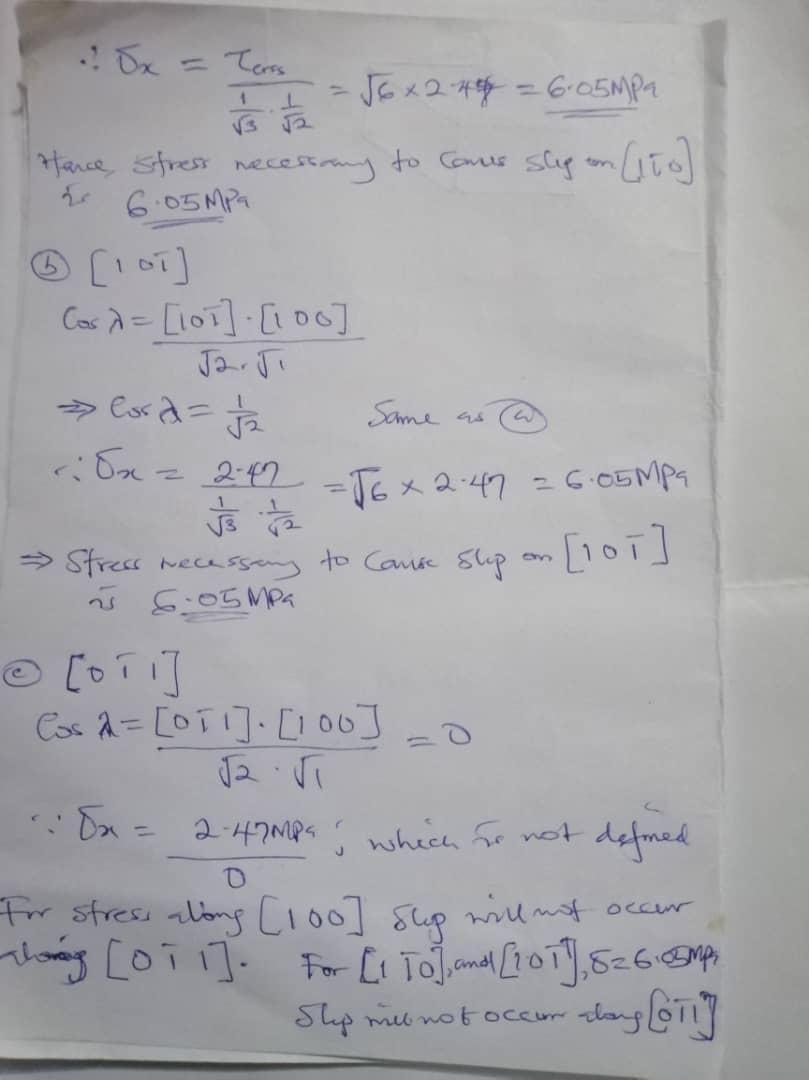 ∴ σx = τcrss / (1/√3 · 1/√2) = √6 × 2.47 = 6.05MPa
Hence, stress necessary to cause slip on [11̄0]
is 6.05MPa
ⓑ [101̄]
Cos λ = [101̄]·[100] / √2.√1
⇒ Cos λ = 1/√2 Same as ⓐ
∴ σx = 2.47 / (1/√3 · 1/√2) = √6 × 2.47 = 6.05MPa
⇒ Stress necessary to cause slip on [101̄]
is 6.05MPa
ⓒ [01̄1]
Cos λ = [01̄1]·[100] / √2·√1 = 0
∴ σx = 2.47MPa / 0 ; which is not defined
For stress along [100] slip will not occur
along [01̄1]. For [11̄0], and [101̄], σ=6.05MPa
Slip will not occur along [01̄1]